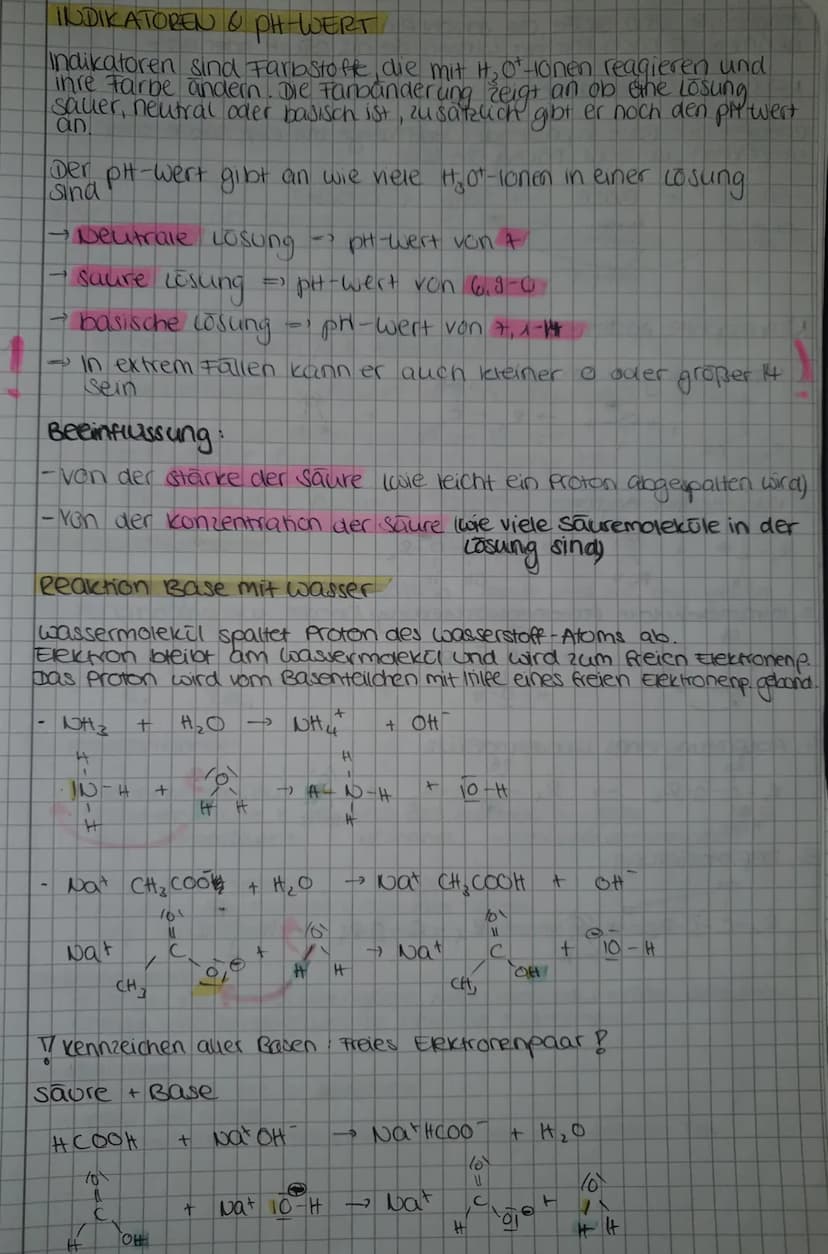 INDIKATOREN & PH-WERT
Indikatoren sind Farbstoffe, die mit H₃O⁺-Ionen reagieren und
ihre Farbe ändern. Die Farbänderung zeigt an ob eine Lösung
sauer, neutral oder basisch ist, zusätzlich gibt er noch den pH wert
an
Der pH-Wert gibt an wie viele H₃O⁺-Ionen in einer Lösung
sind
→ Neutrale Lösung → pH-Wert von 7
→ saure Lösung => pH-Wert von 6,9-0
→ basische Lösung => pH-Wert von 7,1-14
! → In extrem Fällen kann er auch kleiner 0 oder größer 14 !
sein
Beeinflussung:
- Von der Stärke der Säure (wie leicht ein Proton abgespalten wird)
- Von der Konzentration der Säure (wie viele Säuremoleküle in der
Lösung sind)
Reaktion Base mit Wasser
Wassermolekül spaltet Proton des Wasserstoff-Atoms ab.
Elektron bleibt am Wassermolekül und wird zum freien Elektronenp.
Das Proton wird vom Basenteilchen mit Hilfe eines freien Elektronenp. gebund.
- NH₃ + H₂O → NH₄⁺ + OH⁻
H H
|N-H + ⟨O⟩ → H-N-H + |O-H
H H H H
- Na⁺ CH₃COO + H₂O → Na⁺ CH₃COOH + OH⁻
|O| |O| |O|
Na⁺ C O|⊖ + H H → Na⁺ C OH + ⊖|O-H
CH₃ CH₃
!! Kennzeichen aller Basen: Freies Elektronenpaar!
Säure + Base
HCOOH + Na⁺OH⁻ → Na⁺HCOO⁻ + H₂O
|O| |O| |O|
C + Na⁺ |O⊖-H → Na⁺ C |O|⊖ + H H
H OH H